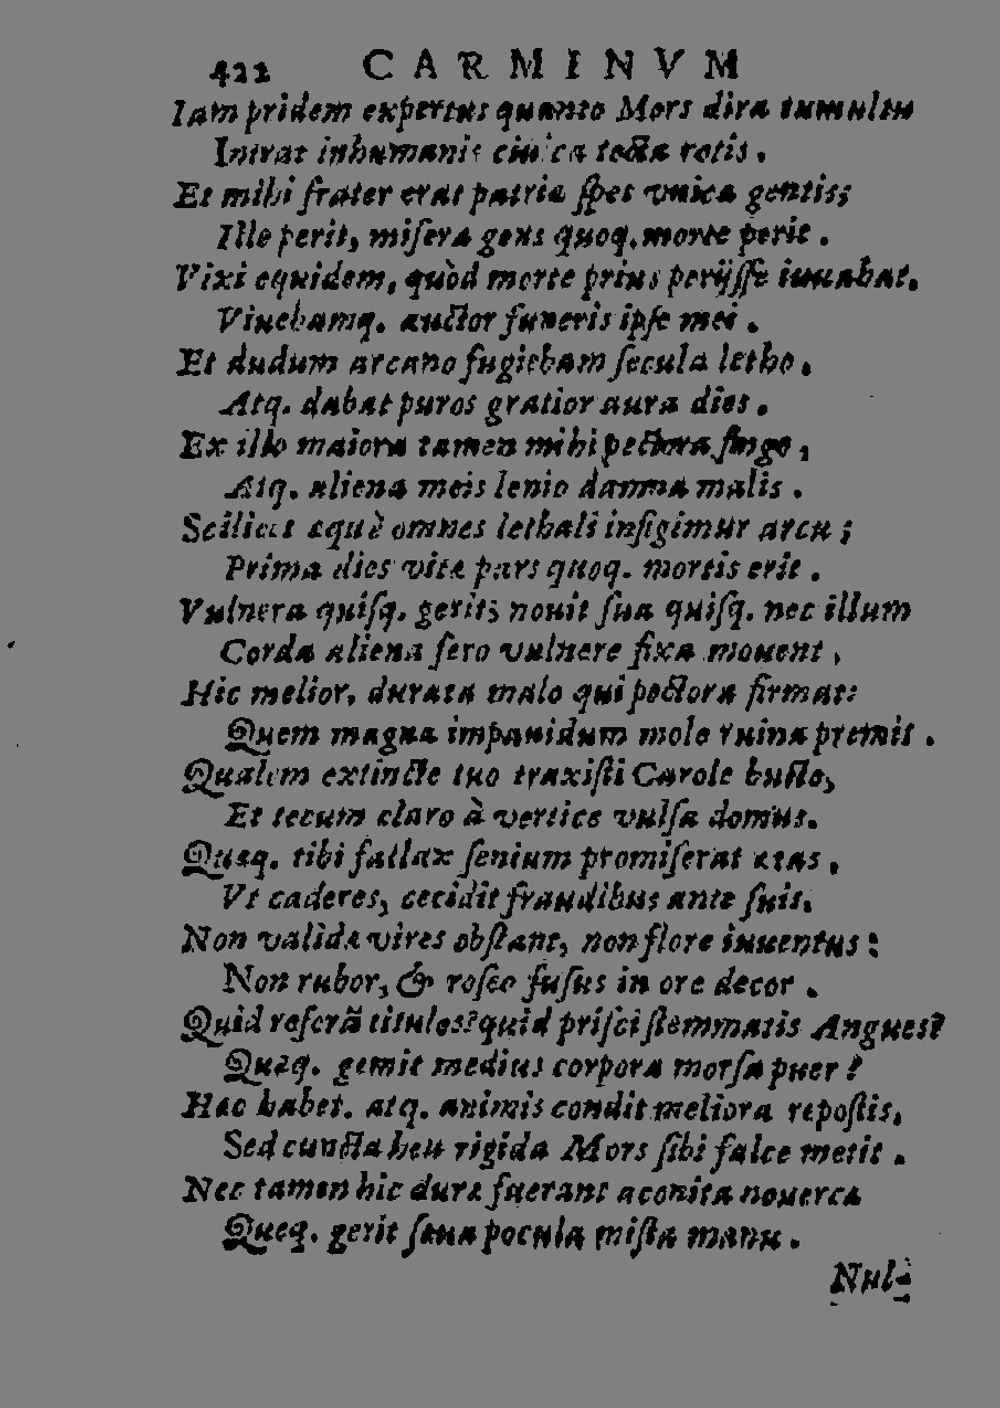 422 CARMINVM
Iam pridem expertus quanto Mors dira tumultu
Intrat inhumanis ciuica tecta rotis.
Et mihi frater erat patriæ ſpes vnica gentis;
Ille perit, miſera gens quoq. morte perit.
Vixi equidem, quòd morte prius perijſſe iuuabat,
Viuebamq. auctor funeris ipſe mei.
Et dudum arcano fugiebam ſecula letho,
Atq. dabat puros gratior aura dies.
Ex illo maiora tamen mihi pectora fingo,
Atq. aliena meis lenio damna malis.
Scilicet æquè omnes lethali inſigimur arcu;
Prima dies vitæ pars quoq. mortis erit.
Vulnera quiſq. gerit; nouit ſua quiſq. nec illum
Corda aliena fero vulnere fixa mouent,
Hic melior, durata malo qui pectora firmat:
Quem magna impauidum mole ruina premit.
Qualem extincte tuo traxiſti Carole buſto,
Et tecum claro à vertice vulſa domus.
Quæq. tibi fallax ſenium promiſerat ætas,
Vt caderes, cecidit fraudibus ante ſuis.
Non validæ vires obſtant, non flore iuuentus:
Non rubor, & roſeo fuſus in ore decor.
Quid referã titulos? quid priſci ſtemmatis Angues?
Quæq. gemit medius corpora morſa puer?
Hæc habet. atq. animis condit meliora repoſtis,
Sed cuncta heu rigida Mors ſibi falce metit.
Nec tamen hic duræ fuerant aconita nouercæ
Quæq. gerit ſæua pocula miſta manu.
Nul-